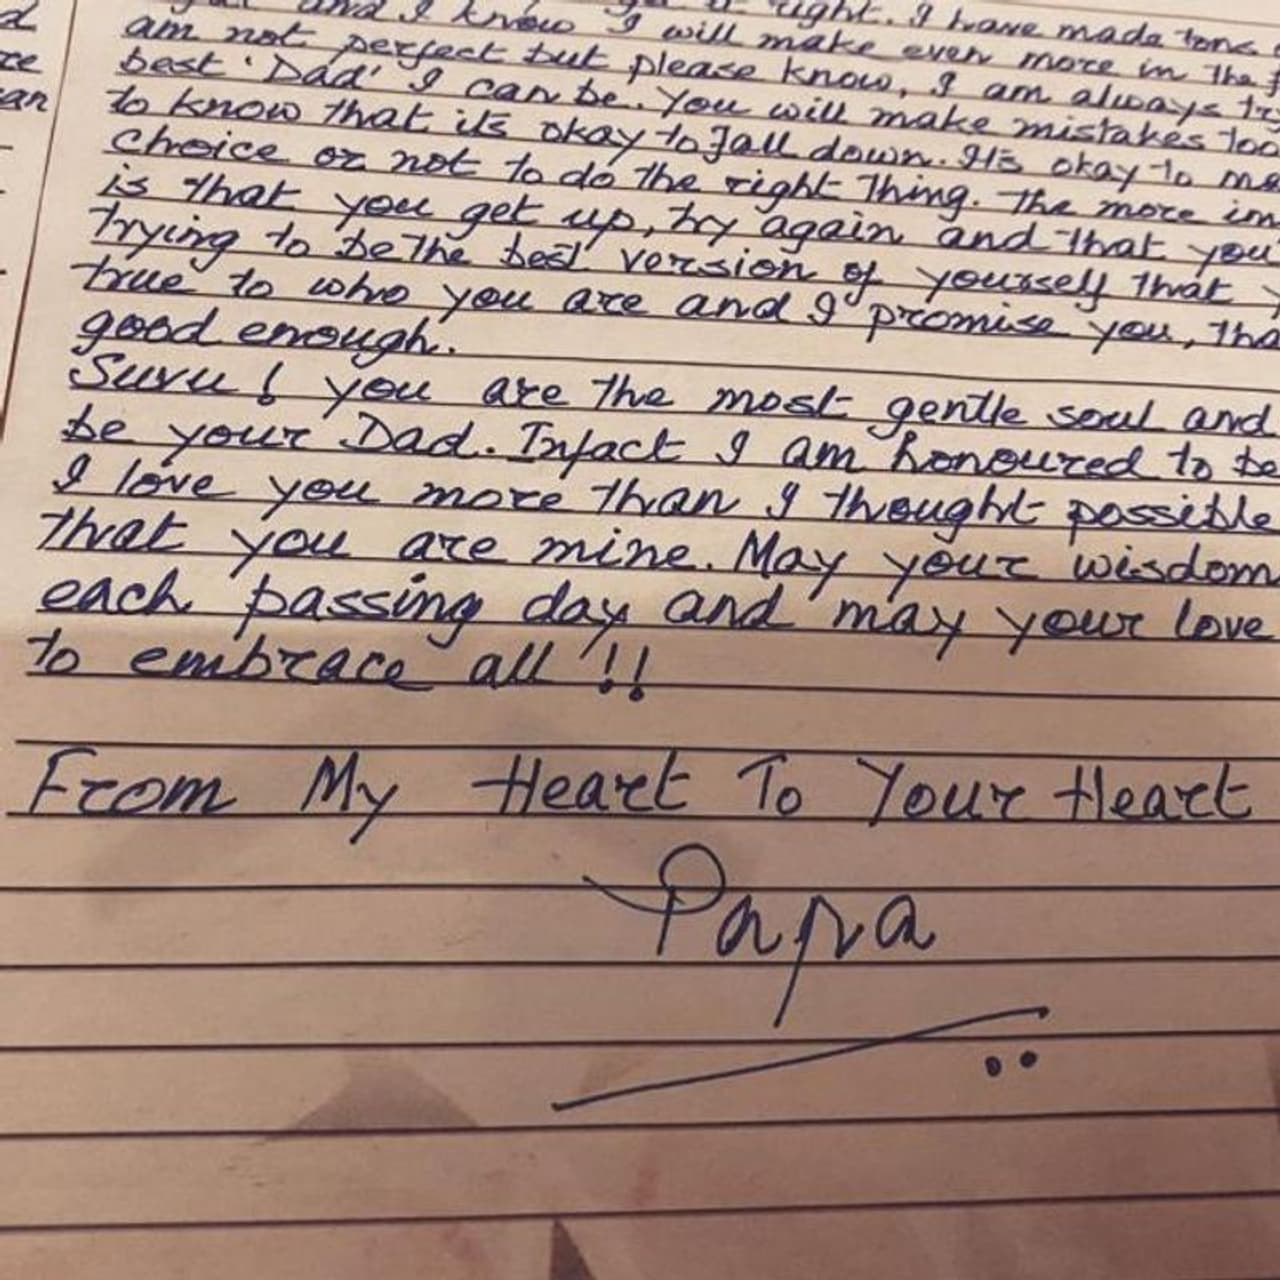 d
re
an
and I know I will make even more in the
right. I have made tons
am not perfect but please know, I am always
best 'Dad' I can be. You will make mistakes too
to know that its okay to fall down. It's okay to
choice or not to do the right thing. The more
is that you get up, try again and that you
trying to be the best version of yourself that
true to who you are and I promise you,
good enough.
Suvu! you are the most gentle soul and
be your Dad. Infact I am honoured to be
I love you more than I thought possible
that you are mine. May your wisdom
each passing day and may your love
to embrace all !!
From My Heart To Your Heart
Papa